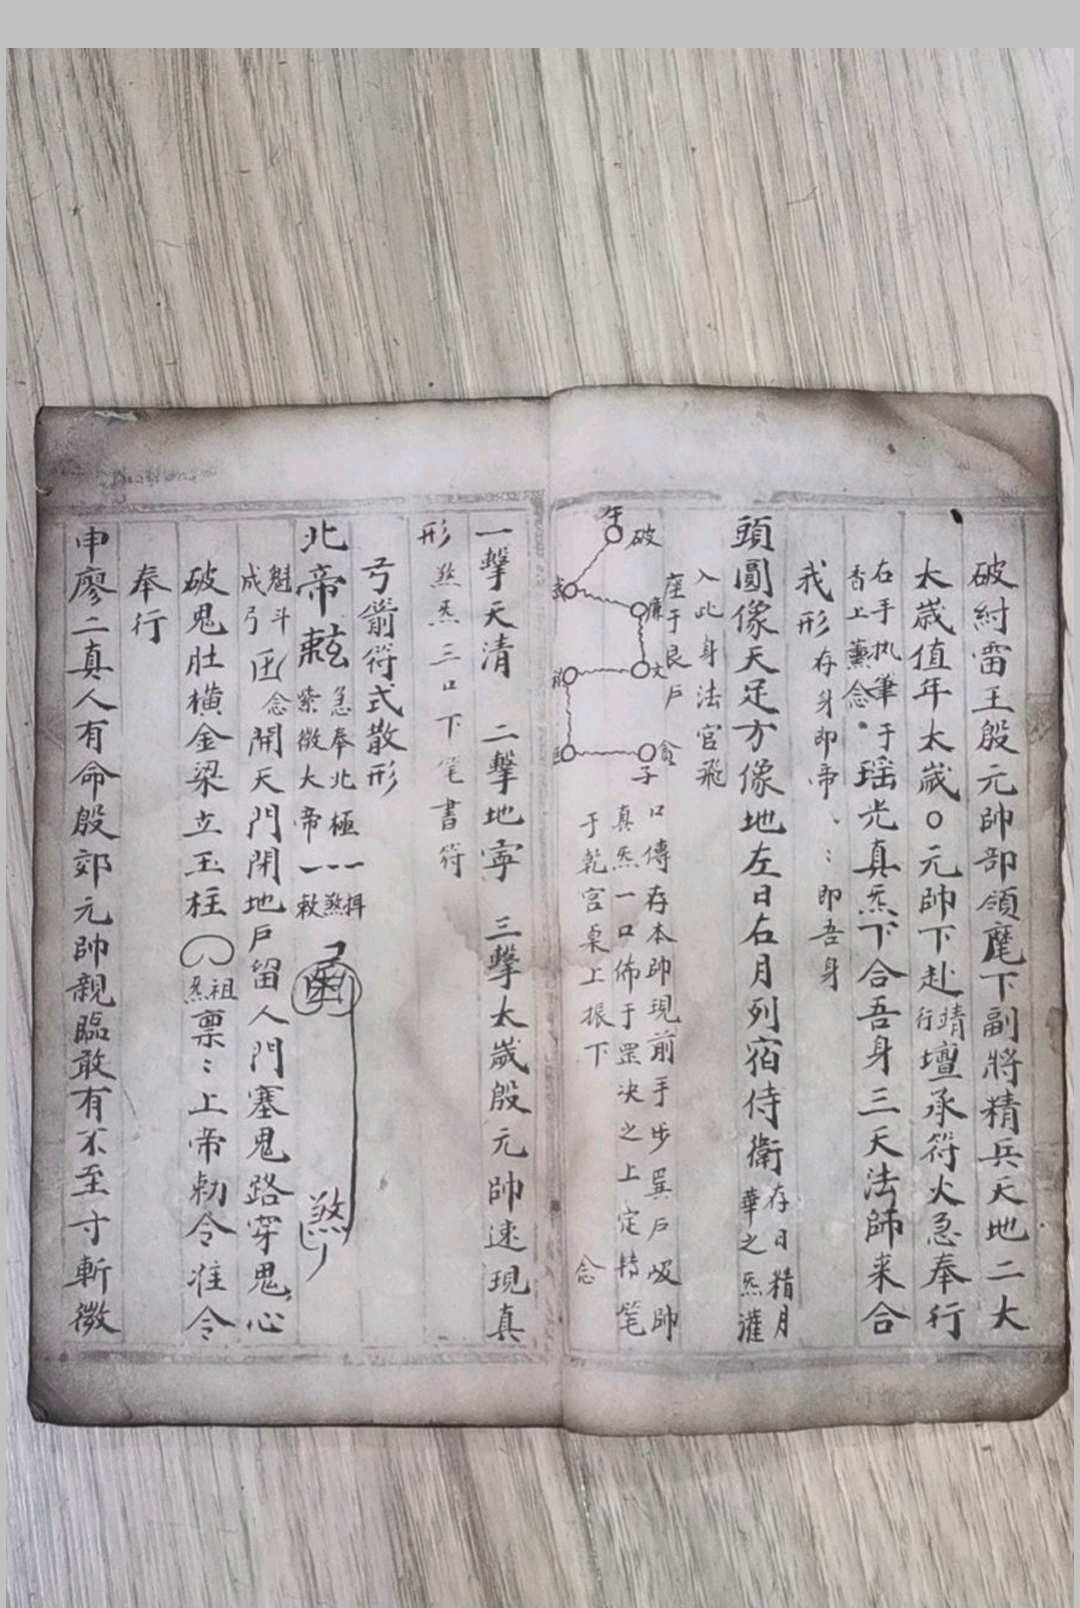 破紂雷王殷元帥部領麾下副將精兵天地二大
太歲值年太歲○元帥下赴靖行壇承符火急奉行
右手执筆于
香上薰念
瑶光真炁下合吾身三天法師来合
我形存身即帝、︰即吾身
頭圓像天足方像地左日右月列宿侍衛存日精月
華之炁灌
入此身法官飛
座于艮户
午
破
武
廉
文
祿
巨
貪
子
口傳存本帥現前手步巽户吸帥
真炁一口佈于罡決之上定持笔
于乾宮桌上振下 念
一擊天清 二擊地寧 三擊太歲殷元帥速現真
形煞炁三口下笔書符
弓箭符式散形
北帝
急奉北極一揖
紫微大帝一煞敕
煞
魁斗
成弓
念開天門閉地户留人門塞鬼路穿鬼心
破鬼肚橫金梁立玉柱
祖炁
禀︰上帝勅令准令
奉行
申廖二真人有命殷郊元帥親臨敢有不至寸斬微